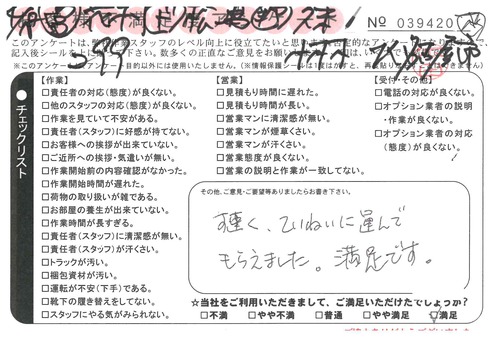 No 039420
このアンケートは、
記入後シールを
※このアンケートは、アンケート目的以外には使用いたしません。
チェックリスト
【作業】
□責任者の対応(態度)が良くない。
□他のスタッフの対応(態度)が良くない。
□作業を見ていて不安がある。
□責任者(スタッフ)に好感が持てない。
□お客様への挨拶が出来ていない。
□ご近所への挨拶・気遣いが無い。
□作業開始前の内容確認がなかった。
□作業開始時間が遅れた。
□荷物の取り扱いが雑である。
□お部屋の養生が出来ていない。
□作業時間が長すぎる。
□責任者(スタッフ)に清潔感が無い。
□責任者(スタッフ)が汗くさい。
□トラックが汚い。
□梱包資材が汚い。
□運転が不安(下手)である。
□靴下の履き替えをしてない。
□スタッフにやる気がみられない。
【営業】
□見積もり時間に遅れた。
□見積もり時間が長い。
□営業マンに清潔感が無い。
□営業マンが煙草くさい。
□営業マンが汗くさい。
□営業態度が良くない。
□営業の説明と作業が一致してない。
【受付・その他】
□電話の対応が良くない。
□オプション業者の説明
・作業が良くない。
□オプション業者の対応
(態度)が良くない。
その他、ご意見・ご要望等ありましたらお書き下さい。
速く、ていねいに運んで
もらえました。満足です。
☆当社をご利用いただきまして、ご満足いただけたでしょうか?
□不満 □やや不満 □普通 □やや満足 □満足